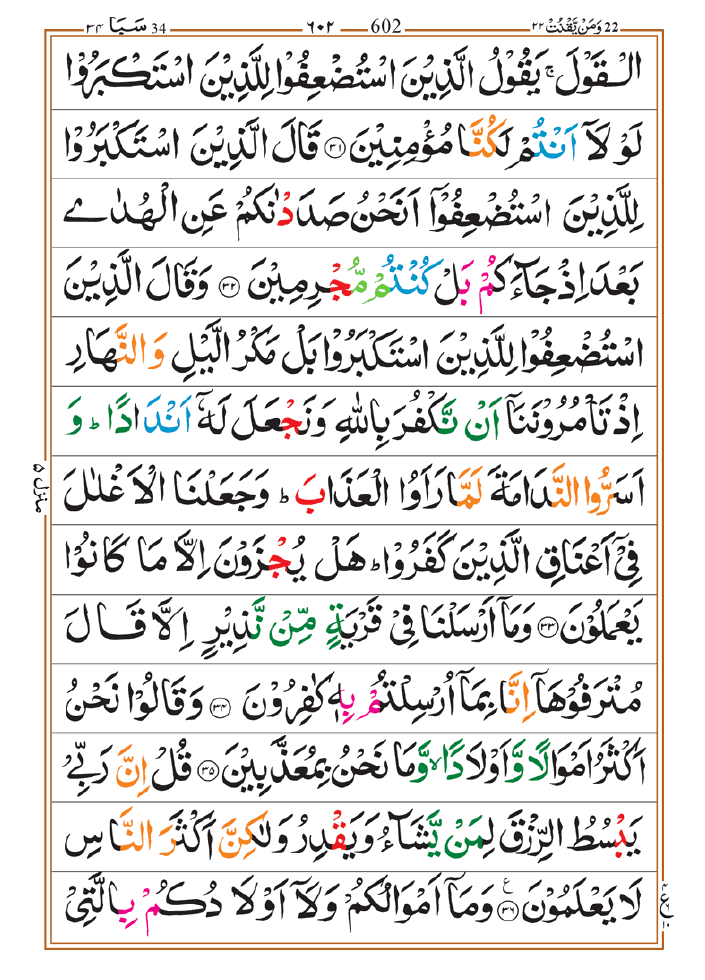 سَبَا 34 ٣٤ 602 ٦٠٢ 22 وَمَنْ يَّقْنُتْ ٢٢
الْقَوْلَ ۚ يَقُوْلُ الَّذِيْنَ اسْتُضْعِفُوْا لِلَّذِيْنَ اسْتَكْبَرُوْا
لَوْ لَاۤ اَنْتُمْ لَكُنَّا مُؤْمِنِيْنَ ﴿٣١﴾ قَالَ الَّذِيْنَ اسْتَكْبَرُوْا
لِلَّذِيْنَ اسْتُضْعِفُوْۤا اَنَحْنُ صَدَدْنٰكُمْ عَنِ الْهُدٰى
بَعْدَ اِذْ جَآءَكُمْ بَلْ كُنْتُمْ مُّجْرِمِيْنَ ﴿٣٢﴾ وَقَالَ الَّذِيْنَ
اسْتُضْعِفُوْا لِلَّذِيْنَ اسْتَكْبَرُوْا بَلْ مَكْرُ الَّيْلِ وَالنَّهَارِ
اِذْ تَاْمُرُوْنَنَاۤ اَنْ نَّكْفُرَ بِاللّٰهِ وَنَجْعَلَ لَهٗۤ اَنْدَادًا ؕ وَ
اَسَرُّوا النَّدَامَةَ لَمَّا رَاَوُا الْعَذَابَ ؕ وَجَعَلْنَا الْاَغْلٰلَ
فِيْۤ اَعْنَاقِ الَّذِيْنَ كَفَرُوْا ؕ هَلْ يُجْزَوْنَ اِلَّا مَا كَانُوْا
يَعْمَلُوْنَ ﴿٣٣﴾ وَمَاۤ اَرْسَلْنَا فِيْ قَرْيَةٍ مِّنْ نَّذِيْرٍ اِلَّا قَالَ
مُتْرَفُوْهَاۤ اِنَّا بِمَاۤ اُرْسِلْتُمْ بِهٖ كٰفِرُوْنَ ﴿٣٤﴾ وَقَالُوْا نَحْنُ
اَكْثَرُ اَمْوَالًا وَّاَوْلَادًا ۙ وَّمَا نَحْنُ بِمُعَذَّبِيْنَ ﴿٣٥﴾ قُلْ اِنَّ رَبِّيْ
يَبْسُطُ الرِّزْقَ لِمَنْ يَّشَآءُ وَيَقْدِرُ وَلٰكِنَّ اَكْثَرَ النَّاسِ
لَا يَعْلَمُوْنَ ﴿٣٦﴾ ع وَمَاۤ اَمْوَالُكُمْ وَلَاۤ اَوْلَادُكُمْ بِالَّتِيْ
منزل ۵